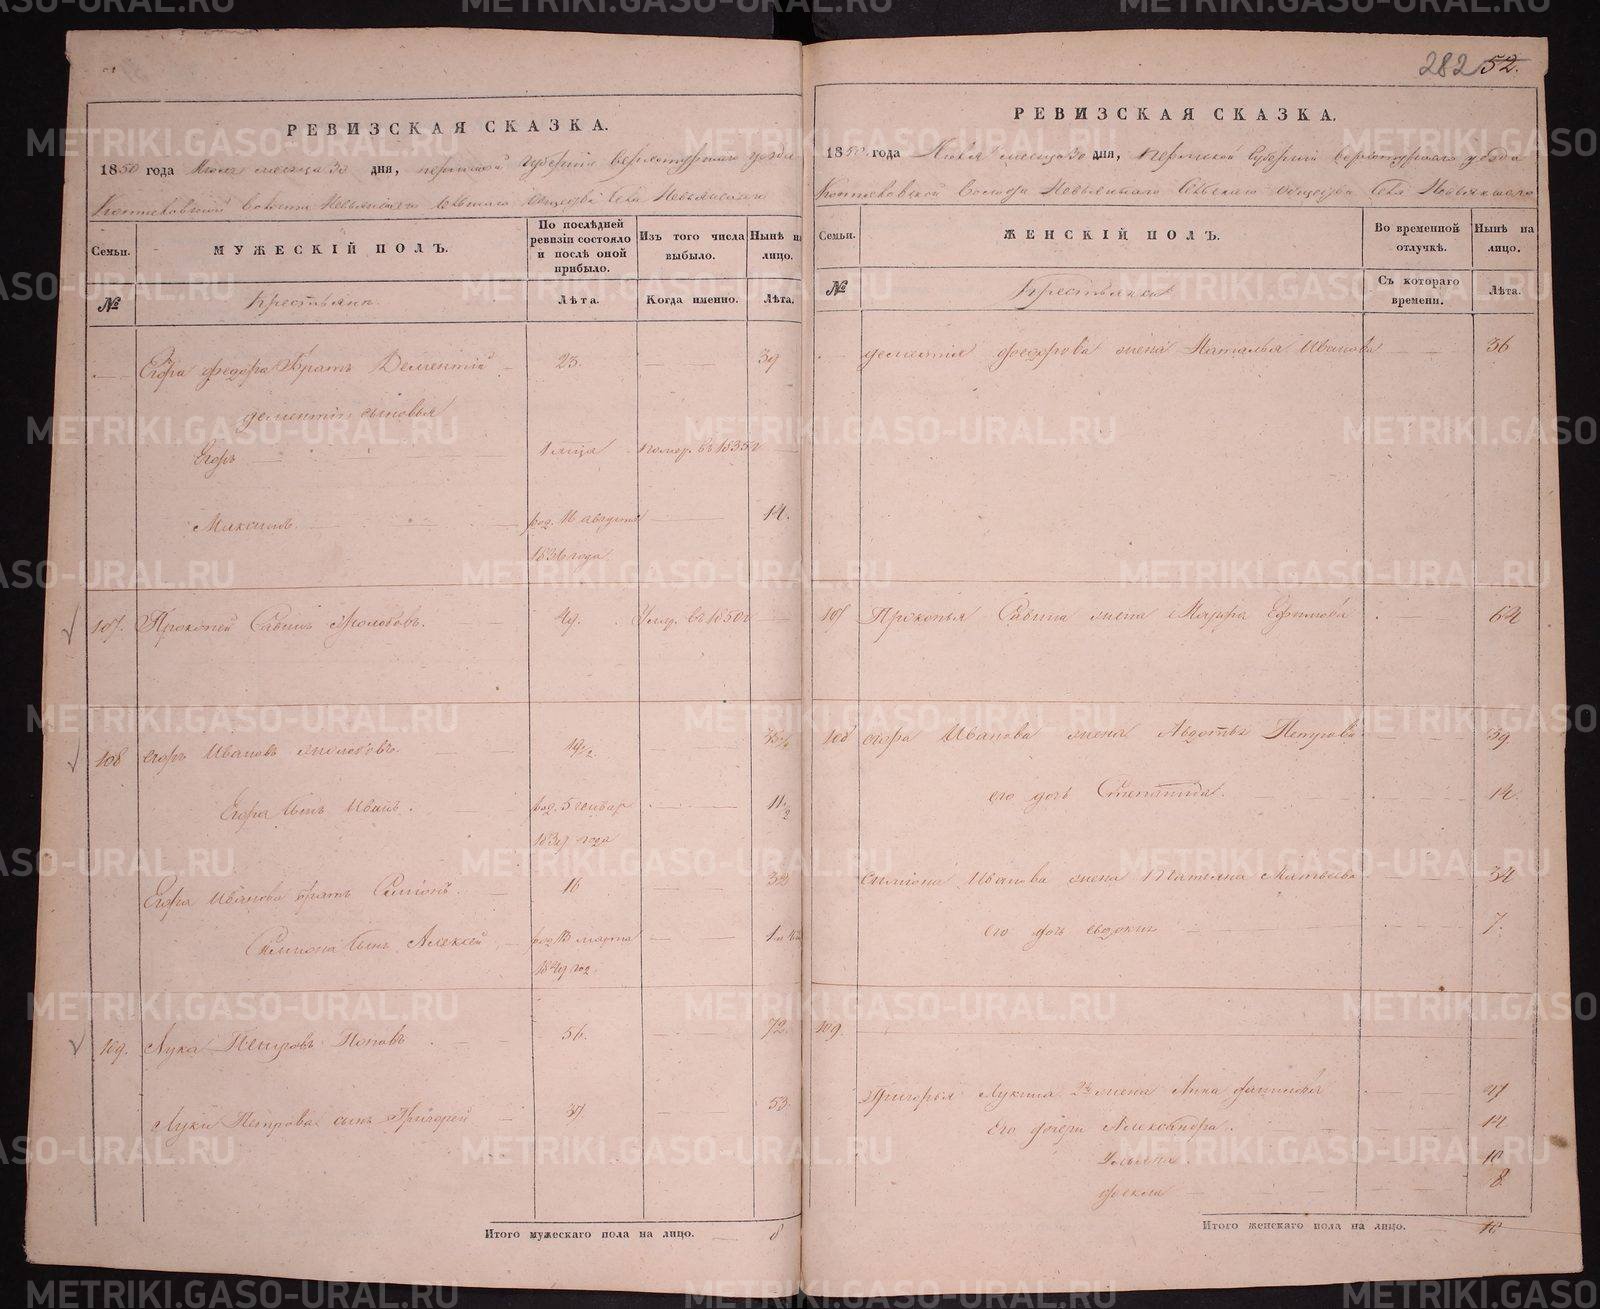 282 52.
РЕВИЗСКАЯ СКАЗКА.
1850 года Июля месяца 30 дня, пермской губернiи верхотурскаго уезда
волости Невьянскаго сельскаго общества села Невьянскаго
Семьи.
МУЖЕСКІЙ ПОЛЪ.
По послѣдней ревизіи состояло и послѣ оной прибыло.
Изъ того числа выбыло.
Нынѣ на лицо.
№
Крестьяне.
Лѣта.
Когда именно.
Лѣта.
Егора федорова братъ Дементій 23. 39
дементія сыновья
Егоръ помер. въ 1835 г
Максимъ род. 16 августа 14.
1836 года
107. Прокопей Савинъ 49. Умер. въ 1850 г
108 егоръ Ивановъ 19 1/2
Егора сынъ Иванъ. род. 5 генвар 11 1/2
1839 года
Егора Иванова братъ Семіонъ. 16 32
Семіона сынъ Алексей род. 13 марта
1849 год.
109. Лука Петровъ Поповъ 56. 72.
Луки Петрова сынъ Григорей 37. 53
Итого мужескаго пола на лицо. 8
РЕВИЗСКАЯ СКАЗКА.
1850 года Июля месяца 30 дня, пермской губерніи верхотурскаго уезда
волости Невьянскаго сельскаго общества села Невьянскаго
Семьи.
ЖЕНСКІЙ ПОЛЪ.
Во временной отлучкѣ.
Нынѣ на лицо.
№
Крестьянки
Съ котораго времени.
Лѣта.
дементія федорова жена Наталья Иванова 36
107 Прокопья Савина жена Марфа Ефимова 64
108 егора Иванова жена Авдотья Петрова 39.
его дочь 14.
семіона Иванова жена Татьяна Матвеева 34
его дочь евдокия 7.
109.
Григорья Лукина 2я жена Анна 47
Его дочери Александра. 14
Ульяна. 10
фекла 8.
Итого женскаго пола на лицо. 10
METRIKI.GASO-URAL.RU